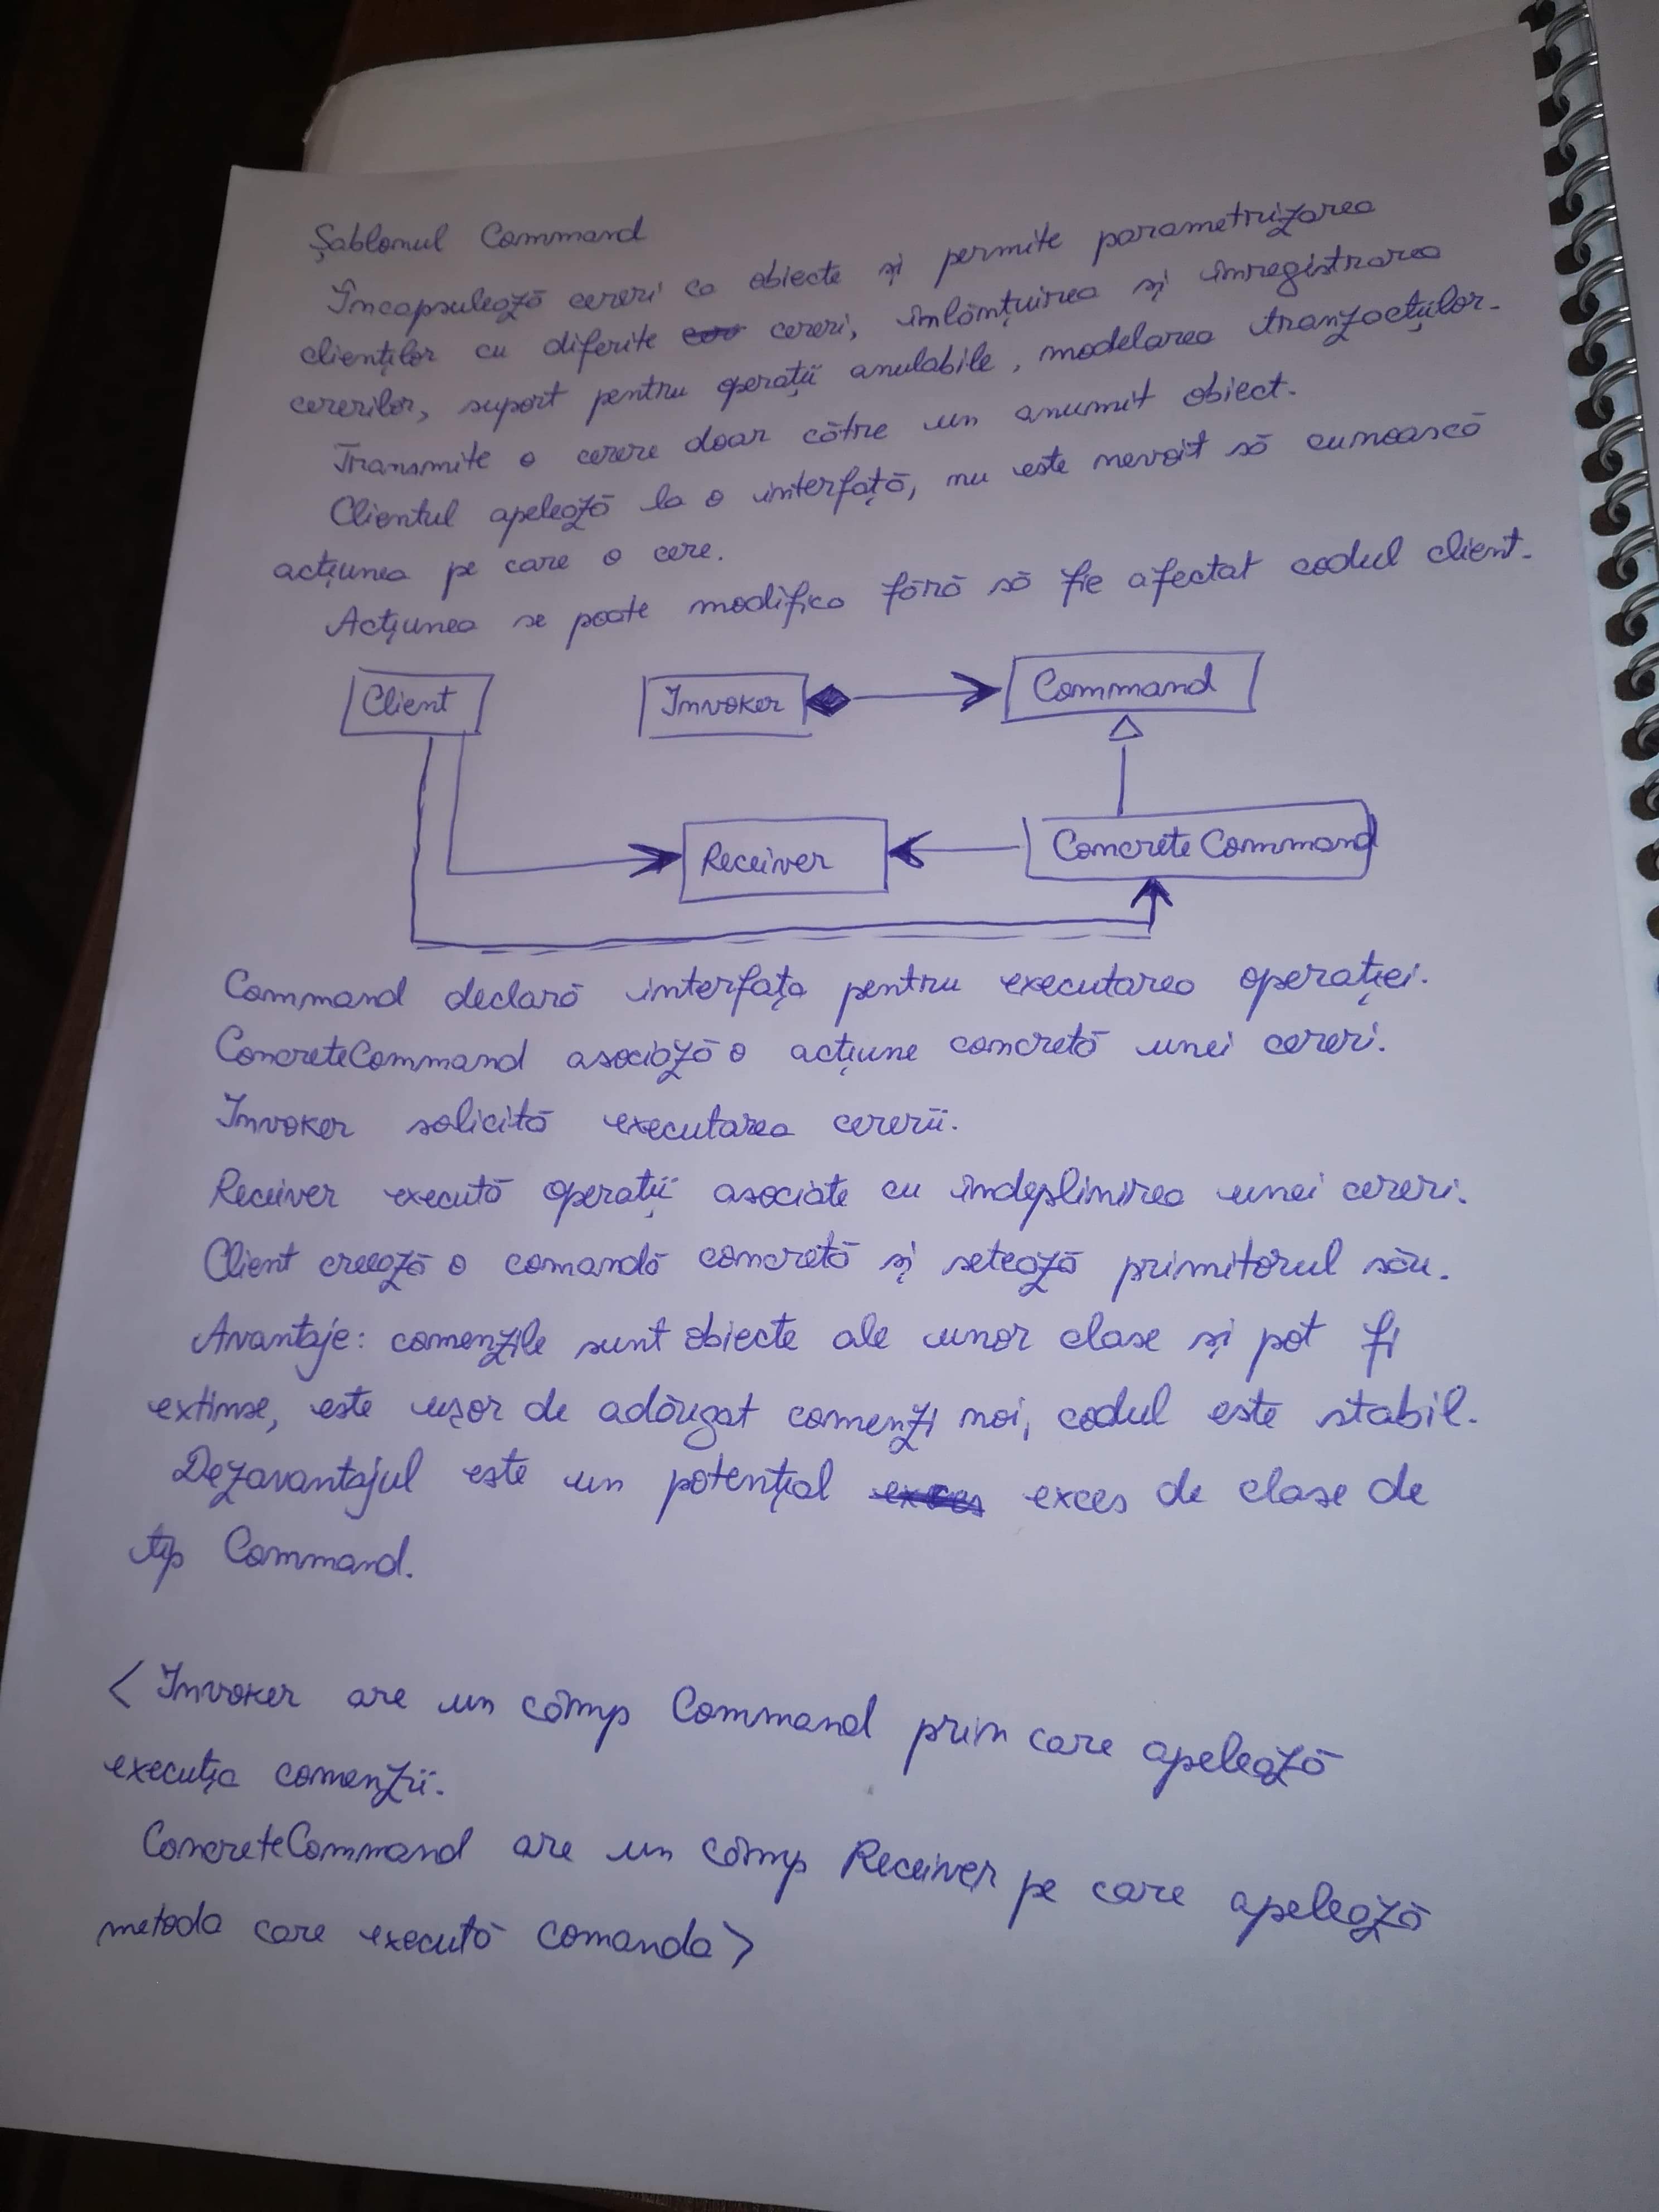 Șablonul Command
Încapsulează cereri ca obiecte și permite parametrizarea
clienților cu diferite cereri, înlănțuirea și înregistrarea
cererilor, suport pentru operații anulabile, modelarea tranzacțiilor.
Transmite o cerere doar către un anumit obiect.
Clientul apelează la o interfață, nu este nevoit să cunoască
acțiunea pe care o cere.
Acțiunea se poate modifica fără să fie afectat codul client.
Client
Invoker
Command
Receiver
ConcreteCommand
Command declară interfața pentru executarea operației.
ConcreteCommand asociază o acțiune concretă unei cereri.
Invoker solicită executarea cererii.
Receiver execută operații asociate cu îndeplinirea unei cereri.
Client creează o comandă concretă și setează primitorul său.
Avantaje: comenzile sunt obiecte ale unor clase și pot fi
extinse, este ușor de adăugat comenzi noi, codul este stabil.
Dezavantajul este un potențial exces de clase de
tip Command.
<Invoker are un câmp Command prin care apelează
execuția comenzii.
ConcreteCommand are un câmp Receiver pe care apelează
metoda care execută comanda>